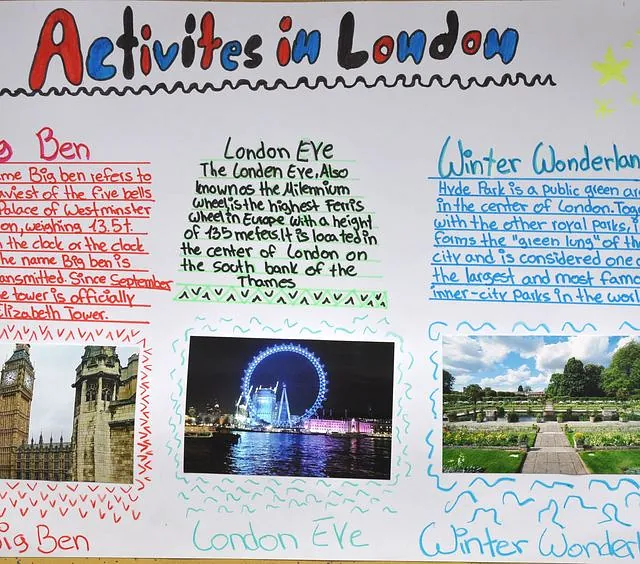 Activites in London
g Ben
me Big ben refers to
aviest of the five bells
Palace of Westminster
on, weighing 13.5t.
n the clock or the clock
he name Big ben is
ansmitted. Since September
e tower is officially
Elizabeth Tower.
London Eye
The London Eye, Also
known as the Millennium
wheel, is the highest Ferris
wheel in Europe with a height
of 135 meters. It is located in
the center of London on
the south bank of the
Thames
Winter Wonderlan
Hyde Park is a public green ar
in the center of London. Tog
with the other royal Parks, i
forms the "green lung" of th
city and is considered one o
the largest and most fam
inner-city Parks in the wor
Big Ben
London Eye
Winter Wonderl